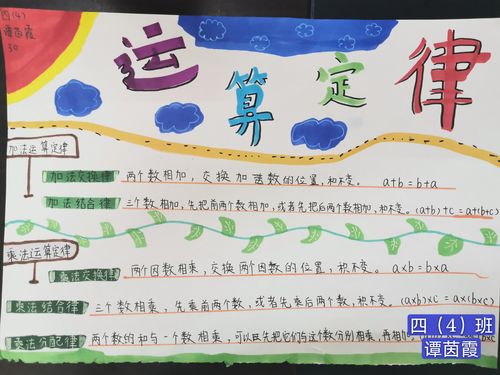 四(4)
谭茵霞
30
运算定律
加法运算定律
加法交换律 两个数相加，交换加法数的位置，和不变。 a+b=b+a
加法结合律 三个数相加，先把前两个数相加，或者先把后两个数相加，和不变。(a+b)+c=a+(b+c)
乘法运算定律
乘法交换律 两个因数相乘，交换两个因数的位置，积不变。 a×b=b×a
乘法结合律 三个数相乘，先乘前两个数，或者先乘后两个数，积不变。(a×b)×c=a×(b×c)
乘法分配律 两个数的和与一个数相乘，可以先把它们与这个数分别相乘，再相加，
四（4）班
谭茵霞